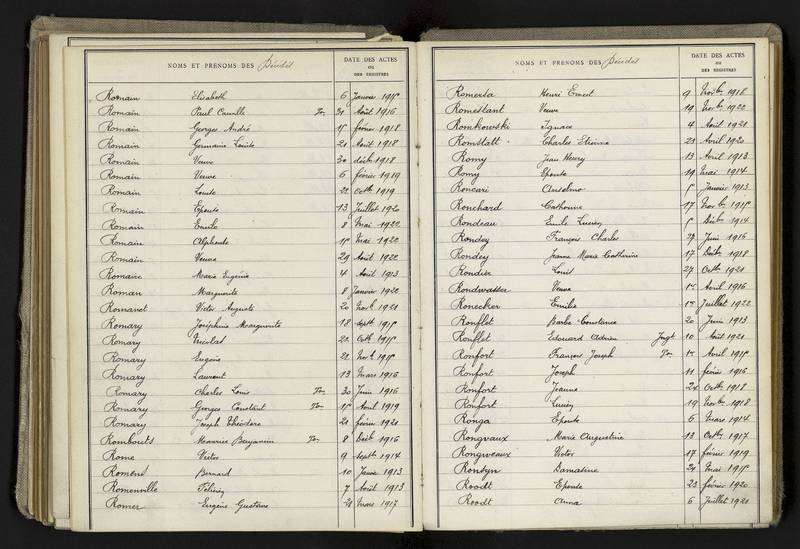 NOMS ET PRENOMS DES Décédés
DATE DES ACTES
OU
DES REGISTRES
Romain Elisabeth 6 Janvier 1915
Romain Paul Camille Ton 31 Août 1916
Romain Georges André 15 février 1918
Romain Germaine Louise 21 Août 1918
Romain Veuve 30 décb. 1918
Romain Veuve 6 février 1919
Romain Louise 22 Octb. 1919
Romain Epouse 13 Juillet 1920
Romain Emile 8 Mai 1922
Romain Alphonse 15 Mai 1922
Romain Veuve 29 Août 1922
Romaire Marie Eugénie 4 Avril 1913
Roman Marguerite 8 Janvier 1922
Romanet Victor Auguste 20 Novb. 1921
Romary Joséphine Marguerite 18 Septb. 1915
Romary Nicolas 22 Octb. 1915
Romary Eugène 21 Novb. 1915
Romary Laurent 13 Mars 1916
Romary Charles Louis Ton 30 Juin 1916
Romary Georges Constant Ton 15 Avril 1919
Romary Joseph Théodore 21 février 1921
Rombouts Maurice Benjamin Ton 8 Décb. 1916
Rome Victor 9 Septb. 1914
Romens Bernard 10 1913
Romenville 7 Avril 1913
Romer Eugène Gustave Mars 1917
NOMS ET PRENOMS DES Décédés
DATE DES ACTES
OU
DES REGISTRES
Romersa Henri Ernest 9 Novb. 1918
Romestant Veuve 19 Novb. 1922
Romkowski Ignace 4 Avril 1921
Romstatt Charles Etienne 21 Avril 1920
Romy Jean Henry 13 Avril 1913
Romy Epouse 19 Mai 1914
Roncari Anselmo 5 Janvier 1913
Ronchard Catherine 17 Novb. 1915
Rondeau Emile Lucien 5 Décb. 1914
Rondey François Charles 27 Juin 1916
Rondey Jeanne Marie Catherine 17 Décb. 1918
Rondier Louis 27 Octb. 1921
Rondwasser Veuve 1er Avril 1916
Ronecker Emilie 1er Juillet 1922
Ronflet Barbe Constance 20 Juin 1913
Ronflet Edouard Adrien Jugt 10 Août 1921
Ronfort François Joseph Ton 1er Avril 1915
Ronfort Joseph 11 février 1916
Ronfort Jeanne 24 Octb. 1918
Ronfort Lucien 19 Novb. 1918
Ronga Epouse 6 Mars 1914
Rongvaux Marie Augustine 13 Octb. 1917
Rongweaux Victor 17 février 1919
Ronsyn Damasine 21 Mai 1915
Roodt Epouse 23 février 1920
Roodt Anna 6 Juillet 1921